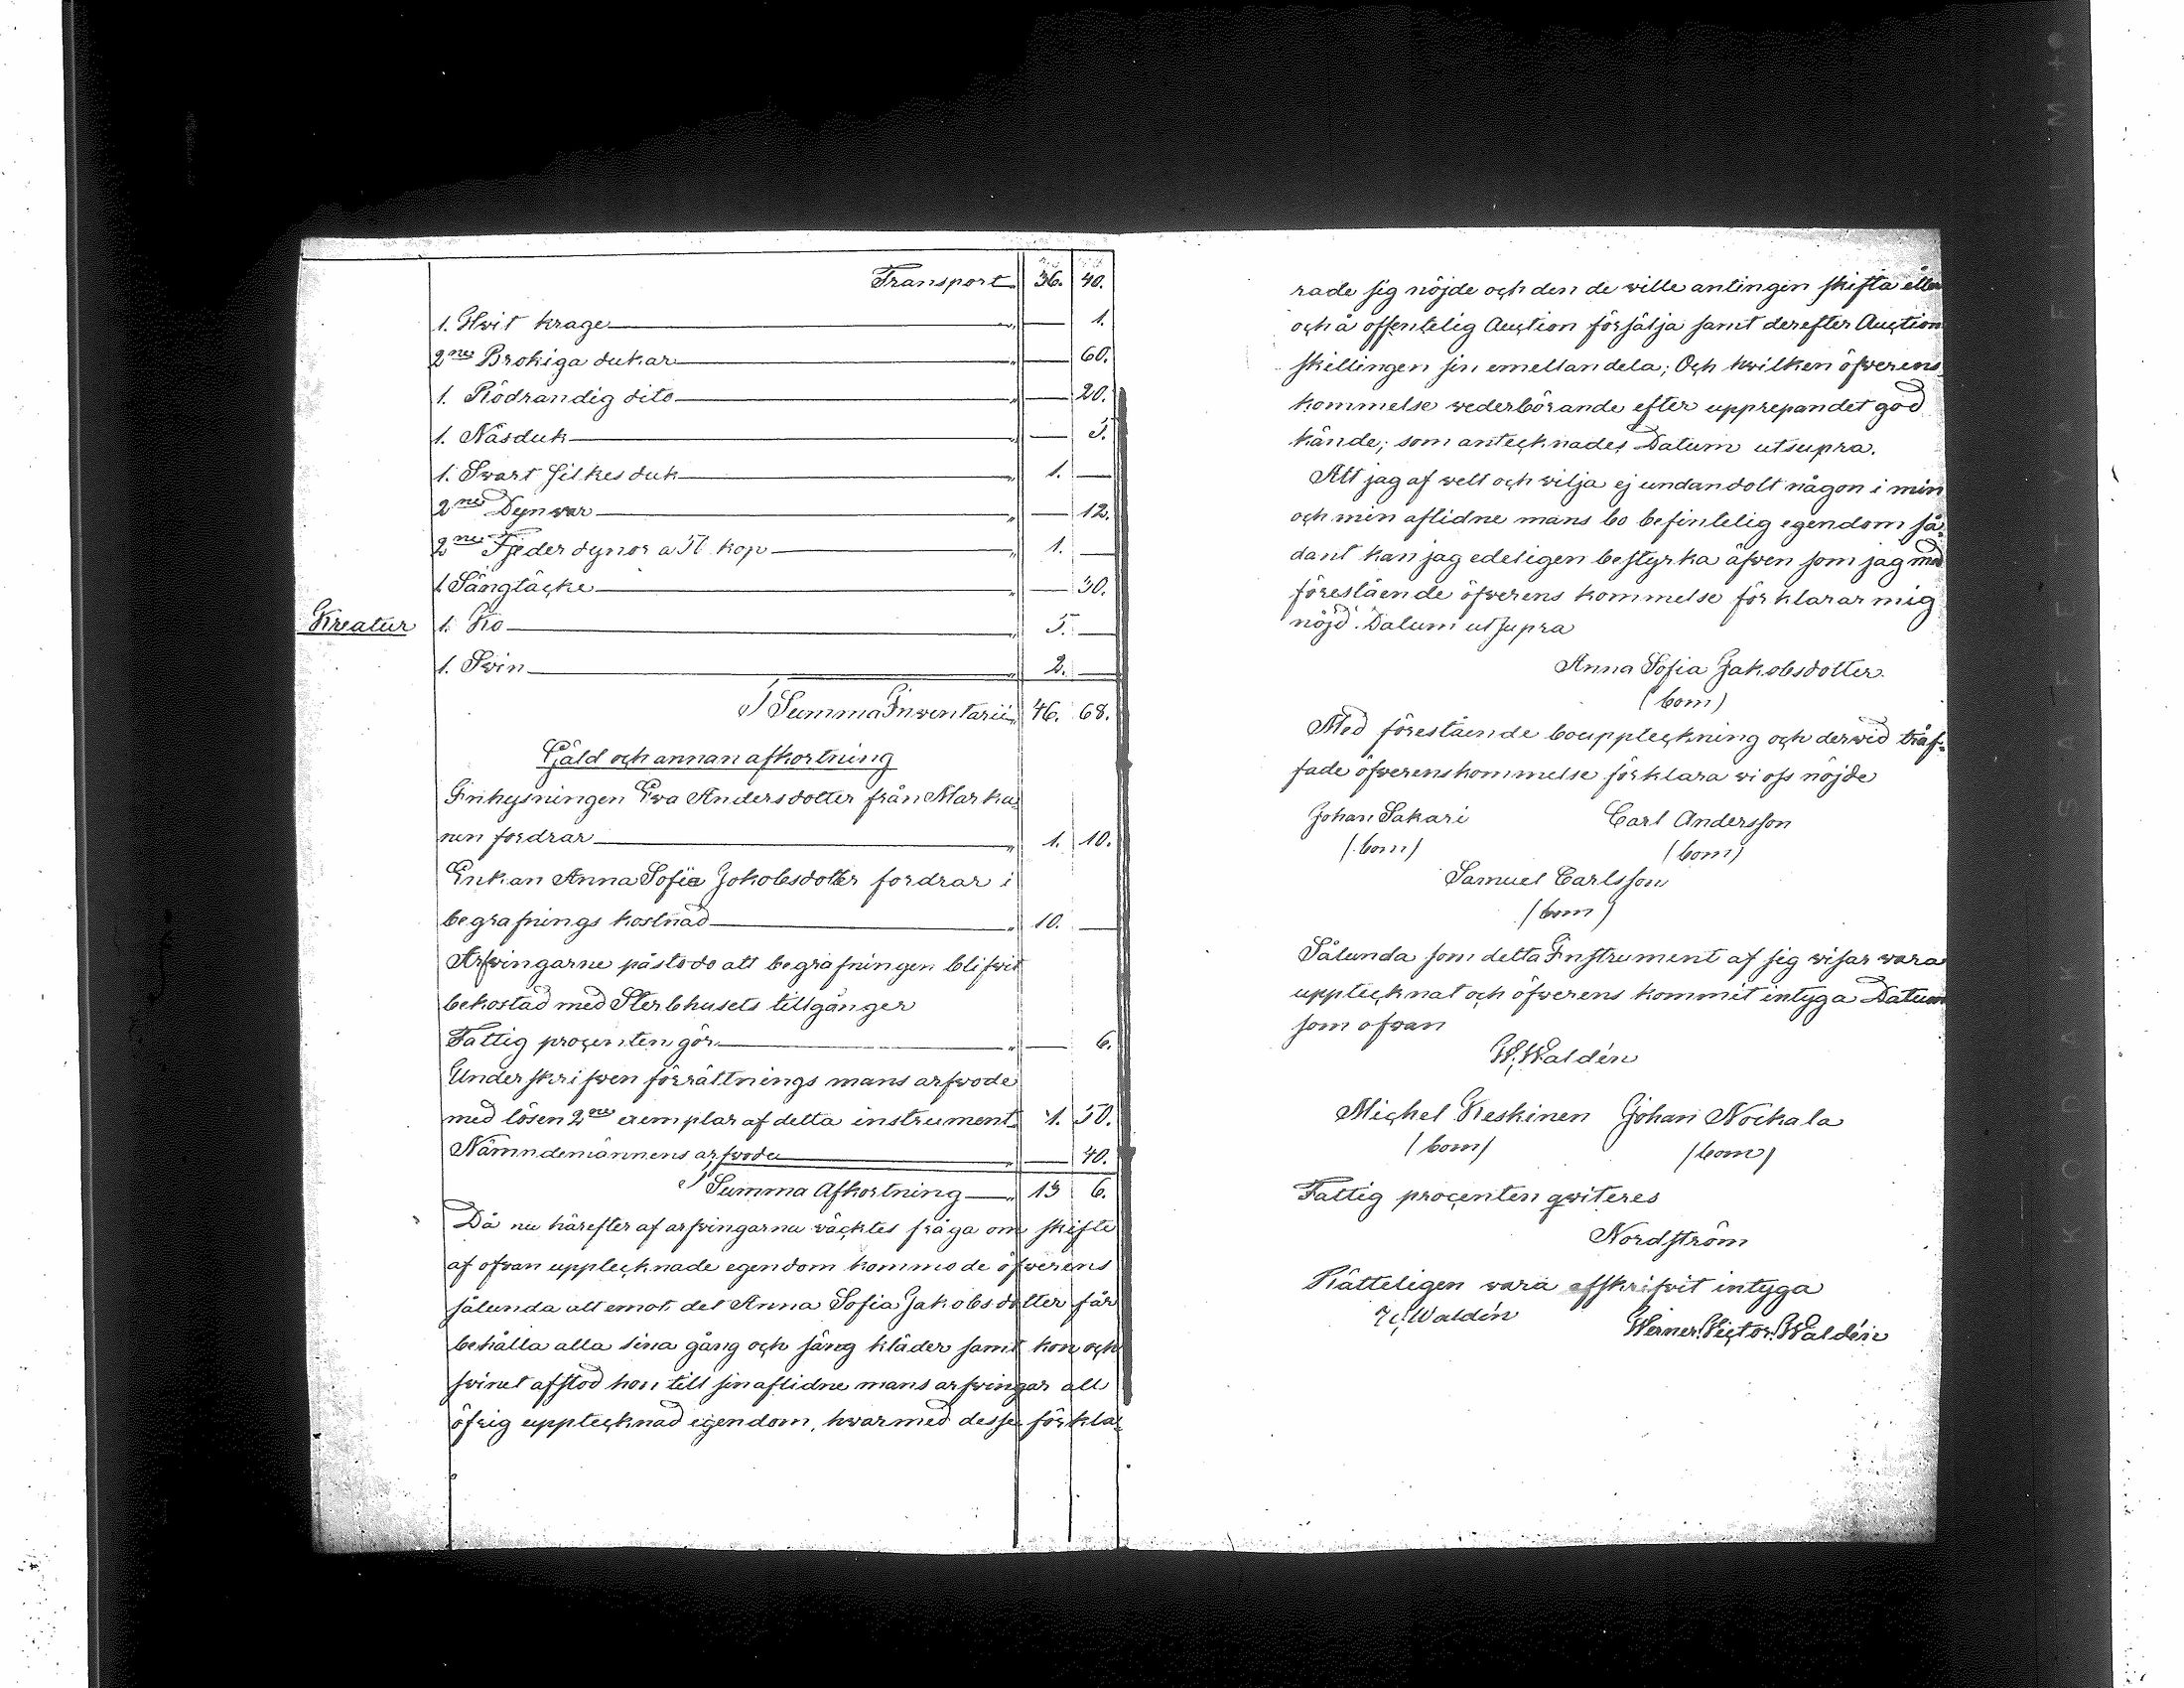 Transport 36. 40.
1. Hvit krage — 1.
2ne Brokiga dukar — 60.
1. Rödrandig dito — 20.
1. Näsduk — 5.
1. Svart silkes duk 1. —
2ne Dynvar — 12.
2ne Fjeder dynor a 50 kop 1. —
1 Sängtäcke — 30.
Kreatur 1. Ko 5. —
1. Svin 2. —
Summa Inventarii 46. 68.
Gäld och annan afkortning
Inhysningen Eva Andersdotter från Marka=
nen fordrar 1. 10.
Enkan Anna Sofia Jakobsdotter fordrar i
begrafnings kostnad 10. —
Arfvingarne påstodo att begrafningen blifvit
bekostad med Sterbhusets tillgånger
Fattig procenten gör — 6.
Underskrifven förrättnings mans arfvode
med lösen 2ne exemplar af detta instrument 1. 50.
Nämndemännens arfvode — 40.
Summa Afkortning 13 6.
Då nu härefter af arfvingarna väcktes fråga om skifte
af ofvan upptecknade egendom kommo de öfverens
sålunda att emot det Anna Sofia Jakobsdotter får
behålla alla sina gång och säng kläder samt kon och
svinet afstod hon till sin aflidne mans arfvingar all
öfrig upptecknad egendom, hvarmed desse förkla=
rade sig nöjde och den de ville antingen skifta eller
och å offentelig Auction försälja samt derefter Auction
skillingen sin emellan dela; Och hvilken öfverens
kommelse vederbörande efter upprepandet god
kände; som antecknades Datum utsupra.
Att jag af vett och vilja ej undandolt någon i min
och min aflidne mans bo befintelig egendom så=
dant kan jag edeligen bestyrka äfven som jag med
förestående öfverens kommelse förklarar mig
nöjd. Datum utsupra
Anna Sofia Jakobsdotter.
(bom)
Med förestående bouppteckning och dervid träf=
fade öfverenskommelse förklara vi oss nöjde
Johan Sakari Carl Andersson
(bom) (bom)
Samuel Carlsson
(bom)
Sålunda som detta Instrument af sig visar vara
upptecknat och öfverens kommit intyga Datum
som ofvan
W. Waldén
Michel Keskinen Johan Nockala
(bom) (bom)
Fattig procenten qviteres
Nordström
Rätteligen vara afskrifvit intyga
Waldén Werner Victor Waldén
KODAK SAFETY FILM